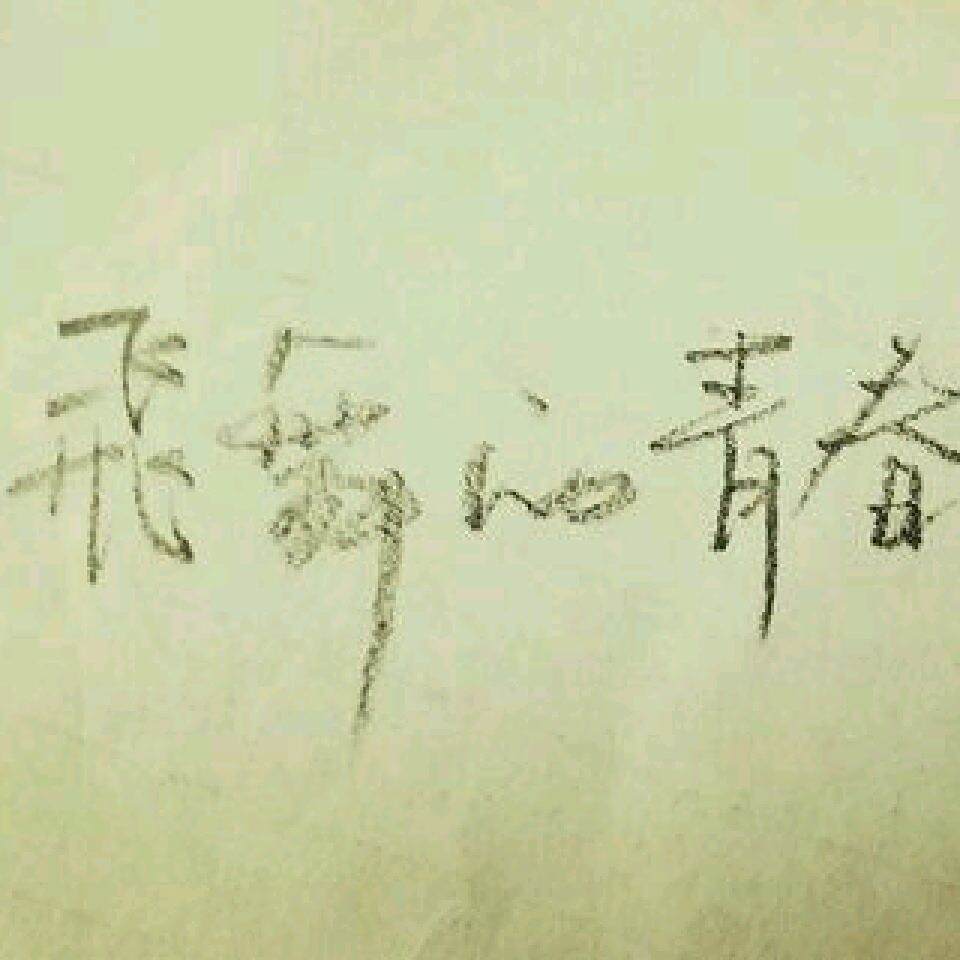 飛舞心青春